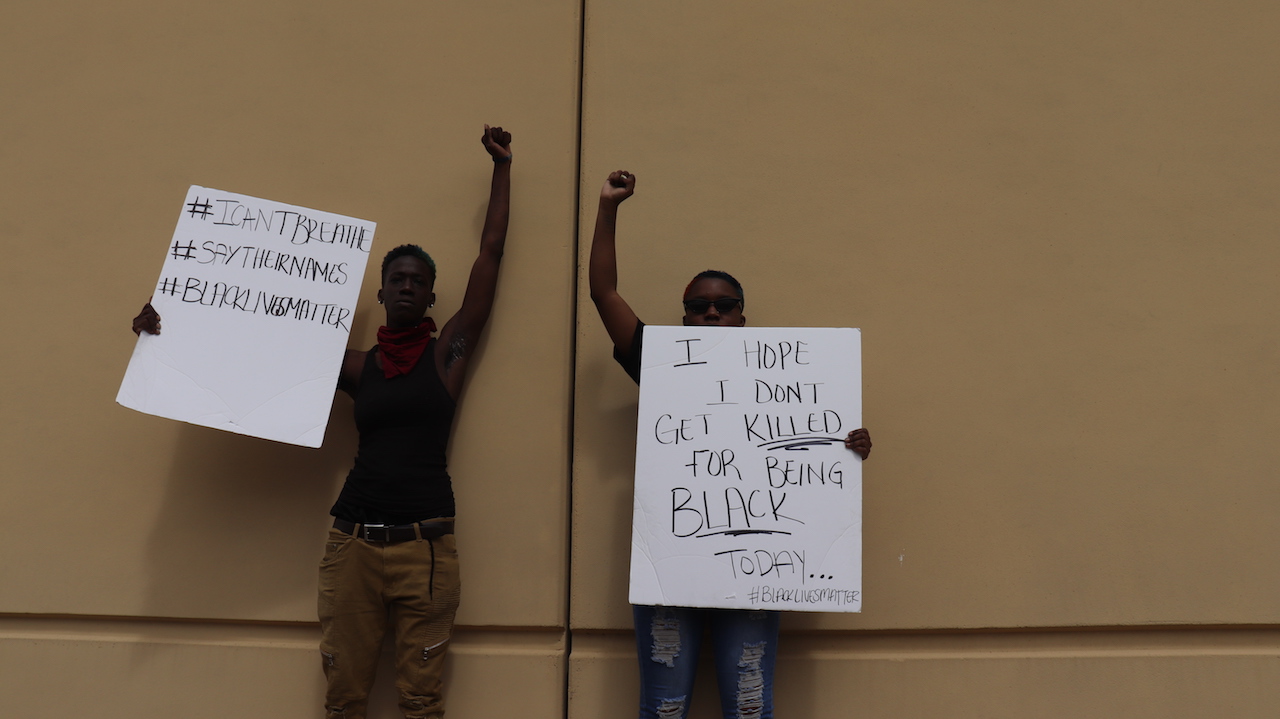 #ICANTBREATHE
#SAYTHEIRNAMES
#BLACKLIVESMATTER
I HOPE
I DONT
GET KILLED
FOR BEING
BLACK
TODAY...
#BLACKLIVESMATTER